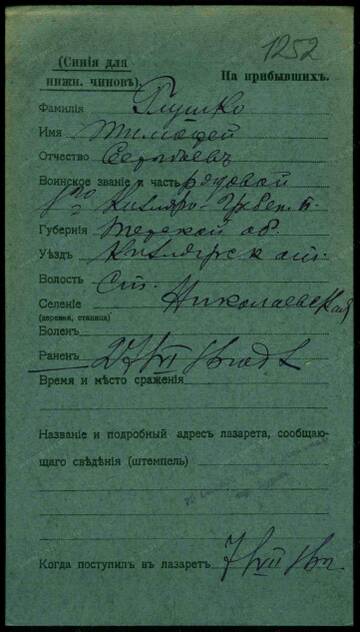 1252
(Синія для
нижн. чиновъ).
На прибывшихъ.
Фамилія Глушко
Имя Тимофей
Отчество Сергѣевъ
Воинское званіе и часть рядовой
Кизляро-Гребен. п.
Губернія Терской об.
Уѣздъ Кизлярск
Волость Ст.
Селеніе Николаевская
(деревня, станица)
Боленъ
Раненъ 27/VI
Время и мѣсто сраженія
Названіе и подробный адресъ лазарета, сообщаю-
щаго свѣдѣнія (штемпель)
Когда поступилъ въ лазаретъ 7/VII